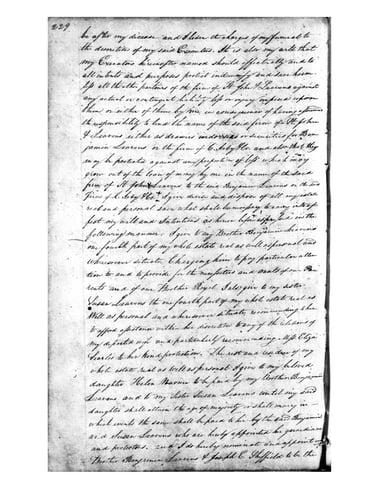 229
be after my decease and I leave the charges of my funeral to
the discretion of my said Executors. It is also my will that
my Executors hereafter named should effectually and to
all intents and purposes protect indemnify and save harm
less all the other partners of the firm of St. John & Leavens against
any actual or contingent liability loss or injury imposed upon
them or either of them by me, in consequence of having assumed
the responsibility to bind the name of the said firm of St John
& Leavens either as drawers indorsers or securities for Ben
jamin Leavens or the firm of C. Roby & Co. and also that they
may be protected against any loss which may
grow out of the loan of money by me in the name of the said
firm of St John & Leavens to the said Benjamin Leavens or the said
firm of C. Roby & Co. I give devise and dispose of all my estate
real and personal after what shall be necessary to carry into ef
fect my will and intentions as herein before in the
following manner. I give to my Brother Benjamin Leavens
one fourth part of my whole estate real as well as personal and
wheresoever situate Charging him to pay particular atten
tion to and to provide for the necessities and wants of our Pa
rents and of our Brother Royal I also give to my sister
Susan Leavens the one fourth part of my whole estate real as
well as personal and wheresoever situate, recommending to her
to afford assistance within her discretion to any of the relations of
my departed wife and particularly recommending Miss Eliza
Searls to her kind protection. The rest and residue of my
whole estate real as well as personal I give to my beloved
daughter Helen Maria to be paid by my Brother Benjamin
Leavens and to my Sister Susan Leavens until my said
daughter shall attain the age of majority or shall marry in
which events the same shall be paid to her by the said Benjamin
and Susan Leavens who are hereby appointed her guardians
and protectors. And I do hereby nominate and appoint my
Brother Benjamin Leavens & Joseph E. Sheffield to be the